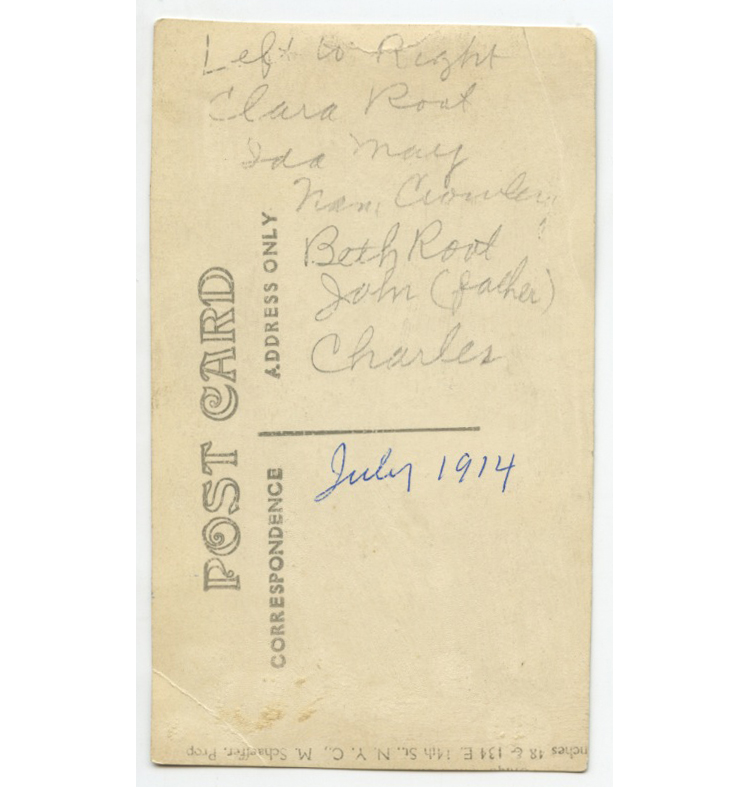 Left to Right
Clara Root
Ida May
Nan Crowley
Beth Root
John (father)
Charles
July 1914
POST CARD
ADDRESS ONLY
CORRESPONDENCE
nches 48 & 134 E. 14th St., N. Y. C., M. Schaeffer, Prop